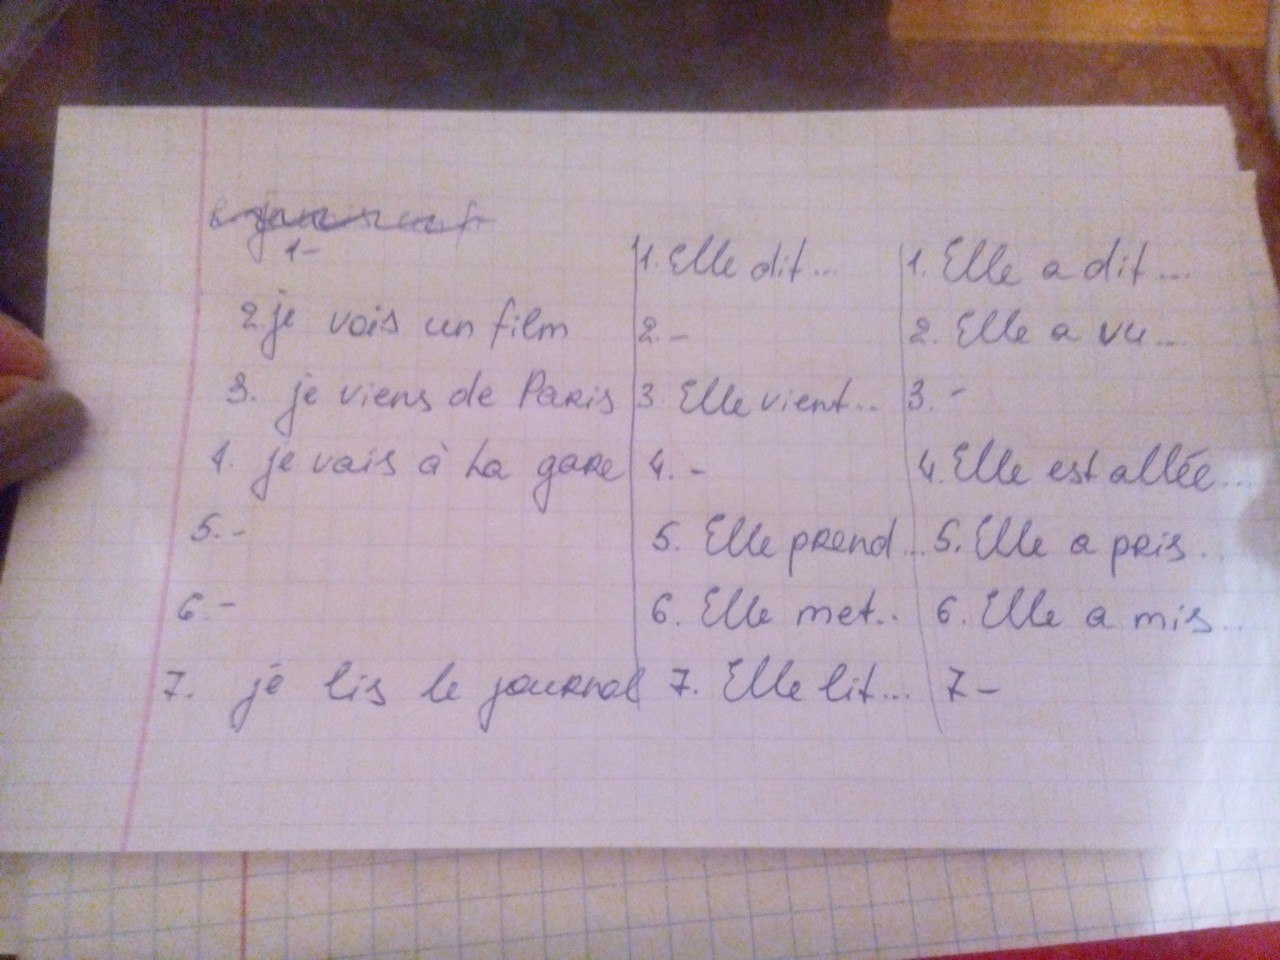 1- 1. Elle dit... 1. Elle a dit...
2. je vois un film 2. - 2. Elle a vu...
3. je viens de Paris 3 Elle vient... 3. -
4. je vais à la gare 4. - 4. Elle est allée...
5. - 5. Elle prend... 5. Elle a pris...
6. - 6. Elle met.. 6. Elle a mis...
7. je lis le journal 7. Elle lit... 7 -